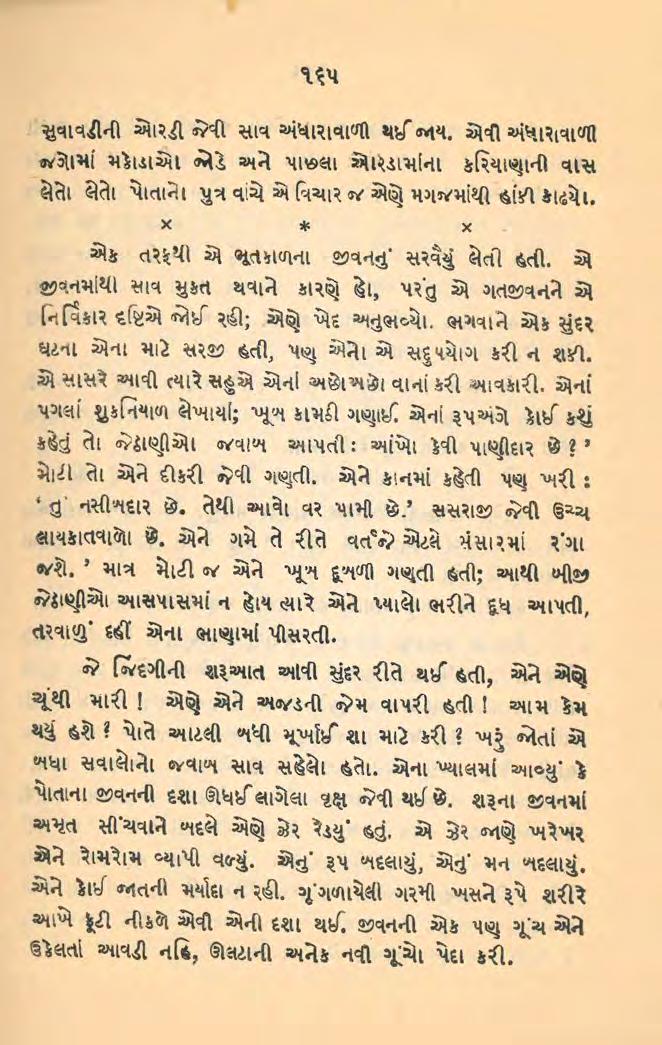 ૧૬૫
સુવાવડીની ઓરડી જેવી સાવ અંધારાવાળી થઈ જાય. એવી અંધારાવાળી
જગામાં મકોડાઓ જોડે અને પાછલા ઓરડામાંના કરિયાણાની વાસ
લેતો લેતો પોતાનો પુત્ર વાંચે એ વિચાર જ એણે મગજમાંથી હાંકી કાઢયો.
× * ×
એક તરફથી એ ભૂતકાળના જીવનનું સરવૈયું લેતી હતી. એ
જીવનમાંથી સાવ મુકત થવાને કારણે હો, પરંતુ એ ગતજીવનને એ
નિર્વિકાર દષ્ટિએ જોઈ રહી; એણે ખેદ અનુભવ્યો. ભગવાને એક સુંદર
ઘટના એના માટે સરજી હતી, પણ એનો એ સદુપયોગ કરી ન શકી.
એ સાસરે આવી ત્યારે સહુએ એનાં અછોઅછો વાનાં કરી આવકારી. એનાં
પગલાં શુકનિયાળ લેખાયાં; ખૂબ કામઠી ગણાઈ. એનાં રૂપઅંગે કોઈ કશું
કહેતું તો જેઠાણીઓ જવાબ આપતી: આંખો કેવી પાણીદાર છે ? ’
મોટી તો એને દીકરી જેવી ગણતી. એને કાનમાં કહેતી પણ ખરી :
‘ તું નસીબદાર છે. તેથી આવો વર પામી છે.’ સસરાજી જેવી ઉચ્ચ
લાયકાતવાળો છે. એને ગમે તે રીતે વર્તજે એટલે સંસારમાં રંગા
જશે. ’ માત્ર મોટી જ એને ખૂબ દૂબળી ગણતી હતી; આથી બીજી
જેઠાણીઓ આસપાસમાં ન હોય ત્યારે એને પ્યાલો ભરીને દૂધ આપતી,
તરવાળું દહીં એના ભાણામાં પીસરતી.
જે જિંદગીની શરૂઆત આવી સુંદર રીતે થઈ હતી, એને એણે
ચૂંથી મારી ! એણે એને અજડની જેમ વાપરી હતી ! આમ કેમ
થયું હશે ? પોતે આટલી બધી મૂર્ખાઈ શા માટે કરી ? ખરૂં જોતાં એ
બધા સવાલોનો જવાબ સાવ સહેલો હતો. એના ખ્યાલમાં આવ્યું કે
પોતાના જીવનની દશા ઊધઈ લાગેલા વૃક્ષ જેવી થઈ છે. શરૂના જીવનમાં
અમૃત સીંચવાને બદલે એણે ઝેર રેડયું હતું. એ ઝેર જાણે ખરેખર
એને રોમરોમ વ્યાપી વળ્યું. એનું રૂપ બદલાયું, એનું મન બદલાયું.
એને કોઈ જાતની મર્યાદા ન રહી. ગૂંગળાયેલી ગરમી ખસને રૂપે શરીરે
આખે ફૂટી નીકળે એવી એની દશા થઈ. જીવનની એક પણ ગૂંચ એને
ઉકેલતાં આવડી નહિ, ઊલટાની અનેક નવી ગૂંચો પેદા કરી.